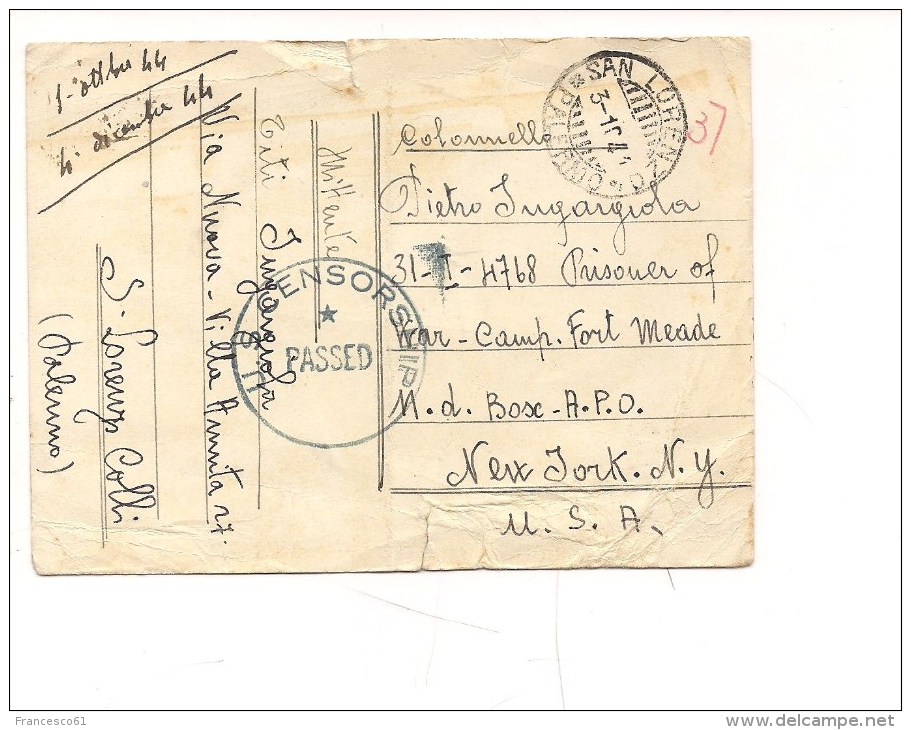 1-ottbre 44
4. dicembre 44
Mittente
Titi Ingargiola
Via Nuova - Villa Annita 27.
S. Lorenzo Colli
(Palermo)
U.S. CENSORSHIP
PASSED
SAN LORENZO
PALERMO
37
Colonnello
Pietro Ingargiola
31-I-4768 Prisoner of
War - Camp. Fort Meade
M.d. Box - A.P.O.
New York. N.Y.
U.S.A.
Francesco61
delcampe.net